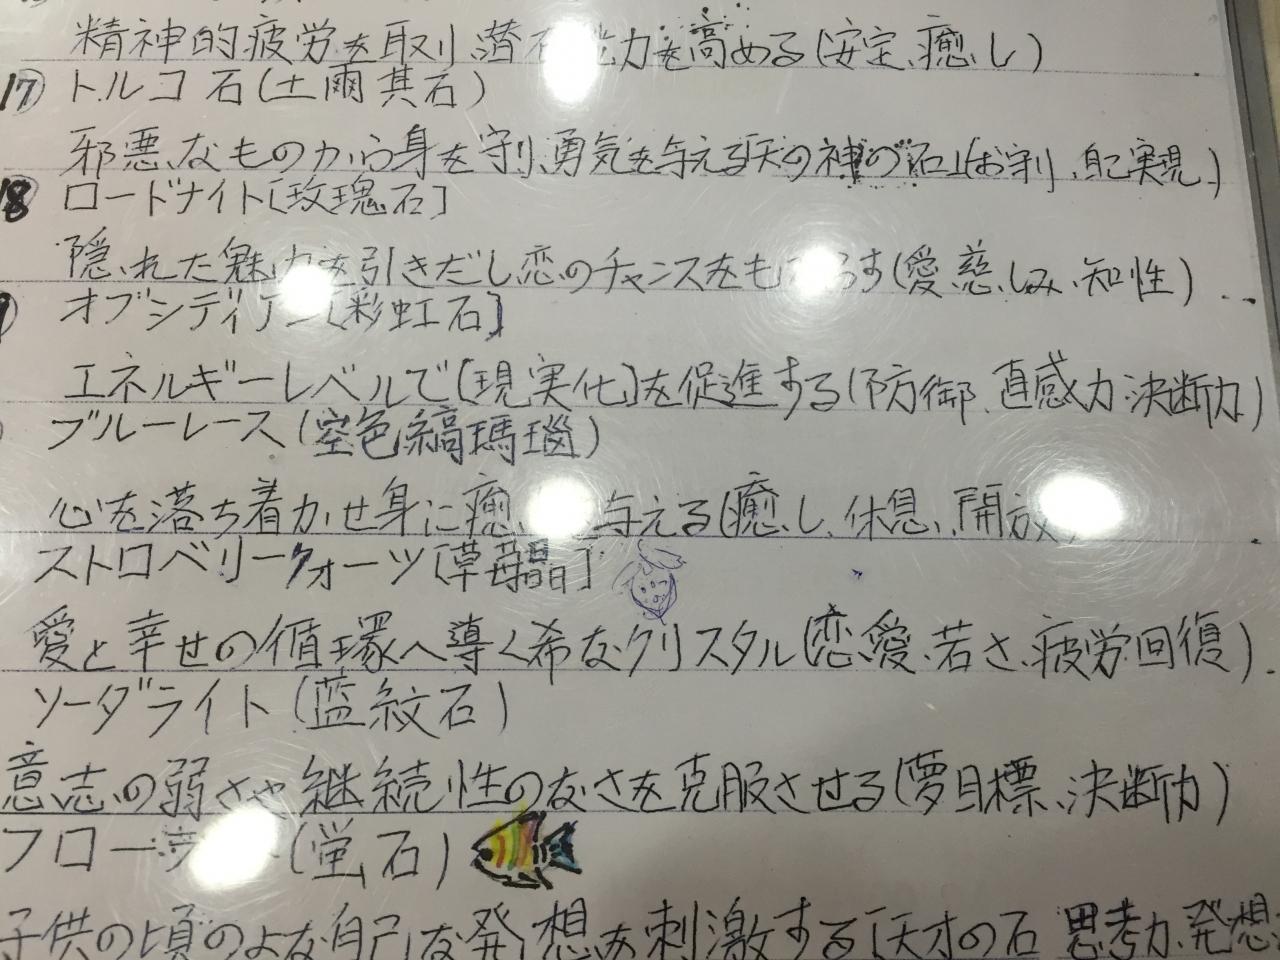 精神的疲労を取り、潜在能力を高める(安定、癒し)
17 トルコ石(土爾其石)
邪悪なものから身を守り、勇気を与える「天の神の石」(お守り、自己実現)
18 ロードナイト[玫瑰石]
隠れた魅力を引きだし恋のチャンスをもたらす(愛、慈しみ、知性)
オブシディアン[彩虹石]
エネルギーレベルで[現実化]を促進する(防御、直感力、決断力)
ブルーレース(空色縞瑪瑙)
心を落ち着かせ身に癒しを与える(癒し、休息、開放)
ストロベリークォーツ[草苺晶]
愛と幸せの循環へ導く希なクリスタル(恋愛、若さ、疲労回復)
ソーダライト(蓝紋石)
意志の弱さや継続性のなさを克服させる(夢目標、決断力)
フローライト(蛍石)
子供の頃のような自己な発想を刺激する「天才の石 思考力、発想